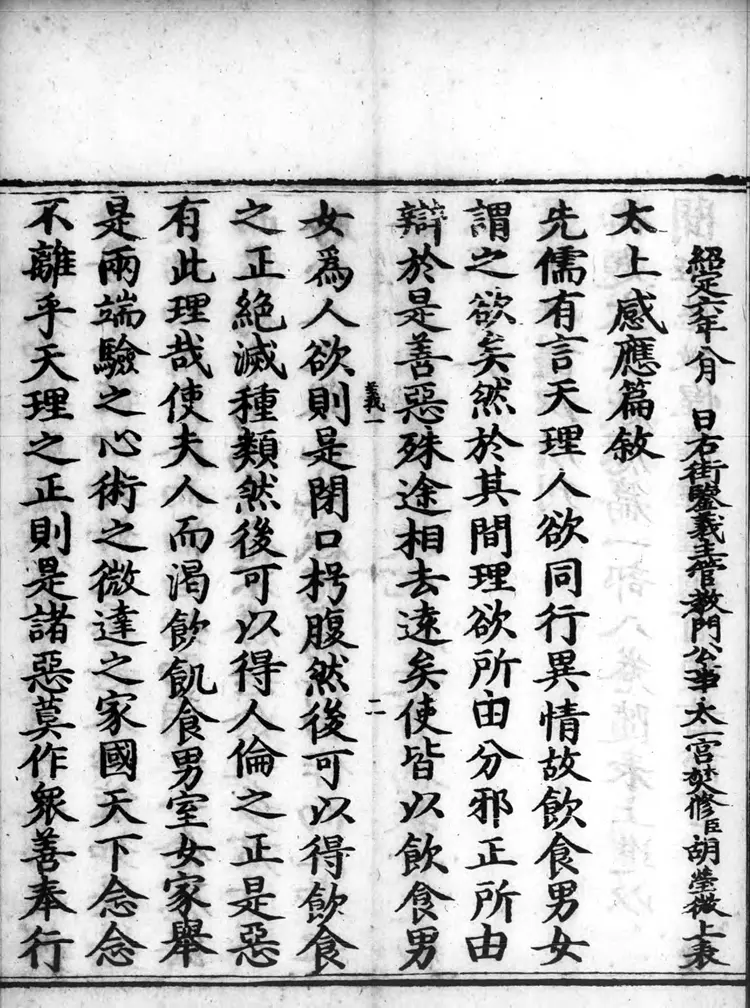 紹定六年八月　日右街鑒義主管教門公事太一宮焚修臣胡瑩微上表
太上感應篇敘
先儒有言天理人欲同行異情故飲食男女
謂之欲矣然於其間理欲所由分邪正所由
辯於是善惡殊途相去遠矣使皆以飲食男
義一　二
女爲人欲則是閉口枵腹然後可以得飲食
之正絕滅種類然後可以得人倫之正是惡
有此理哉使夫人而渴飲飢食男室女家舉
是兩端驗之心術之微達之家國天下念念
不離乎天理之正則是諸惡莫作眾善奉行